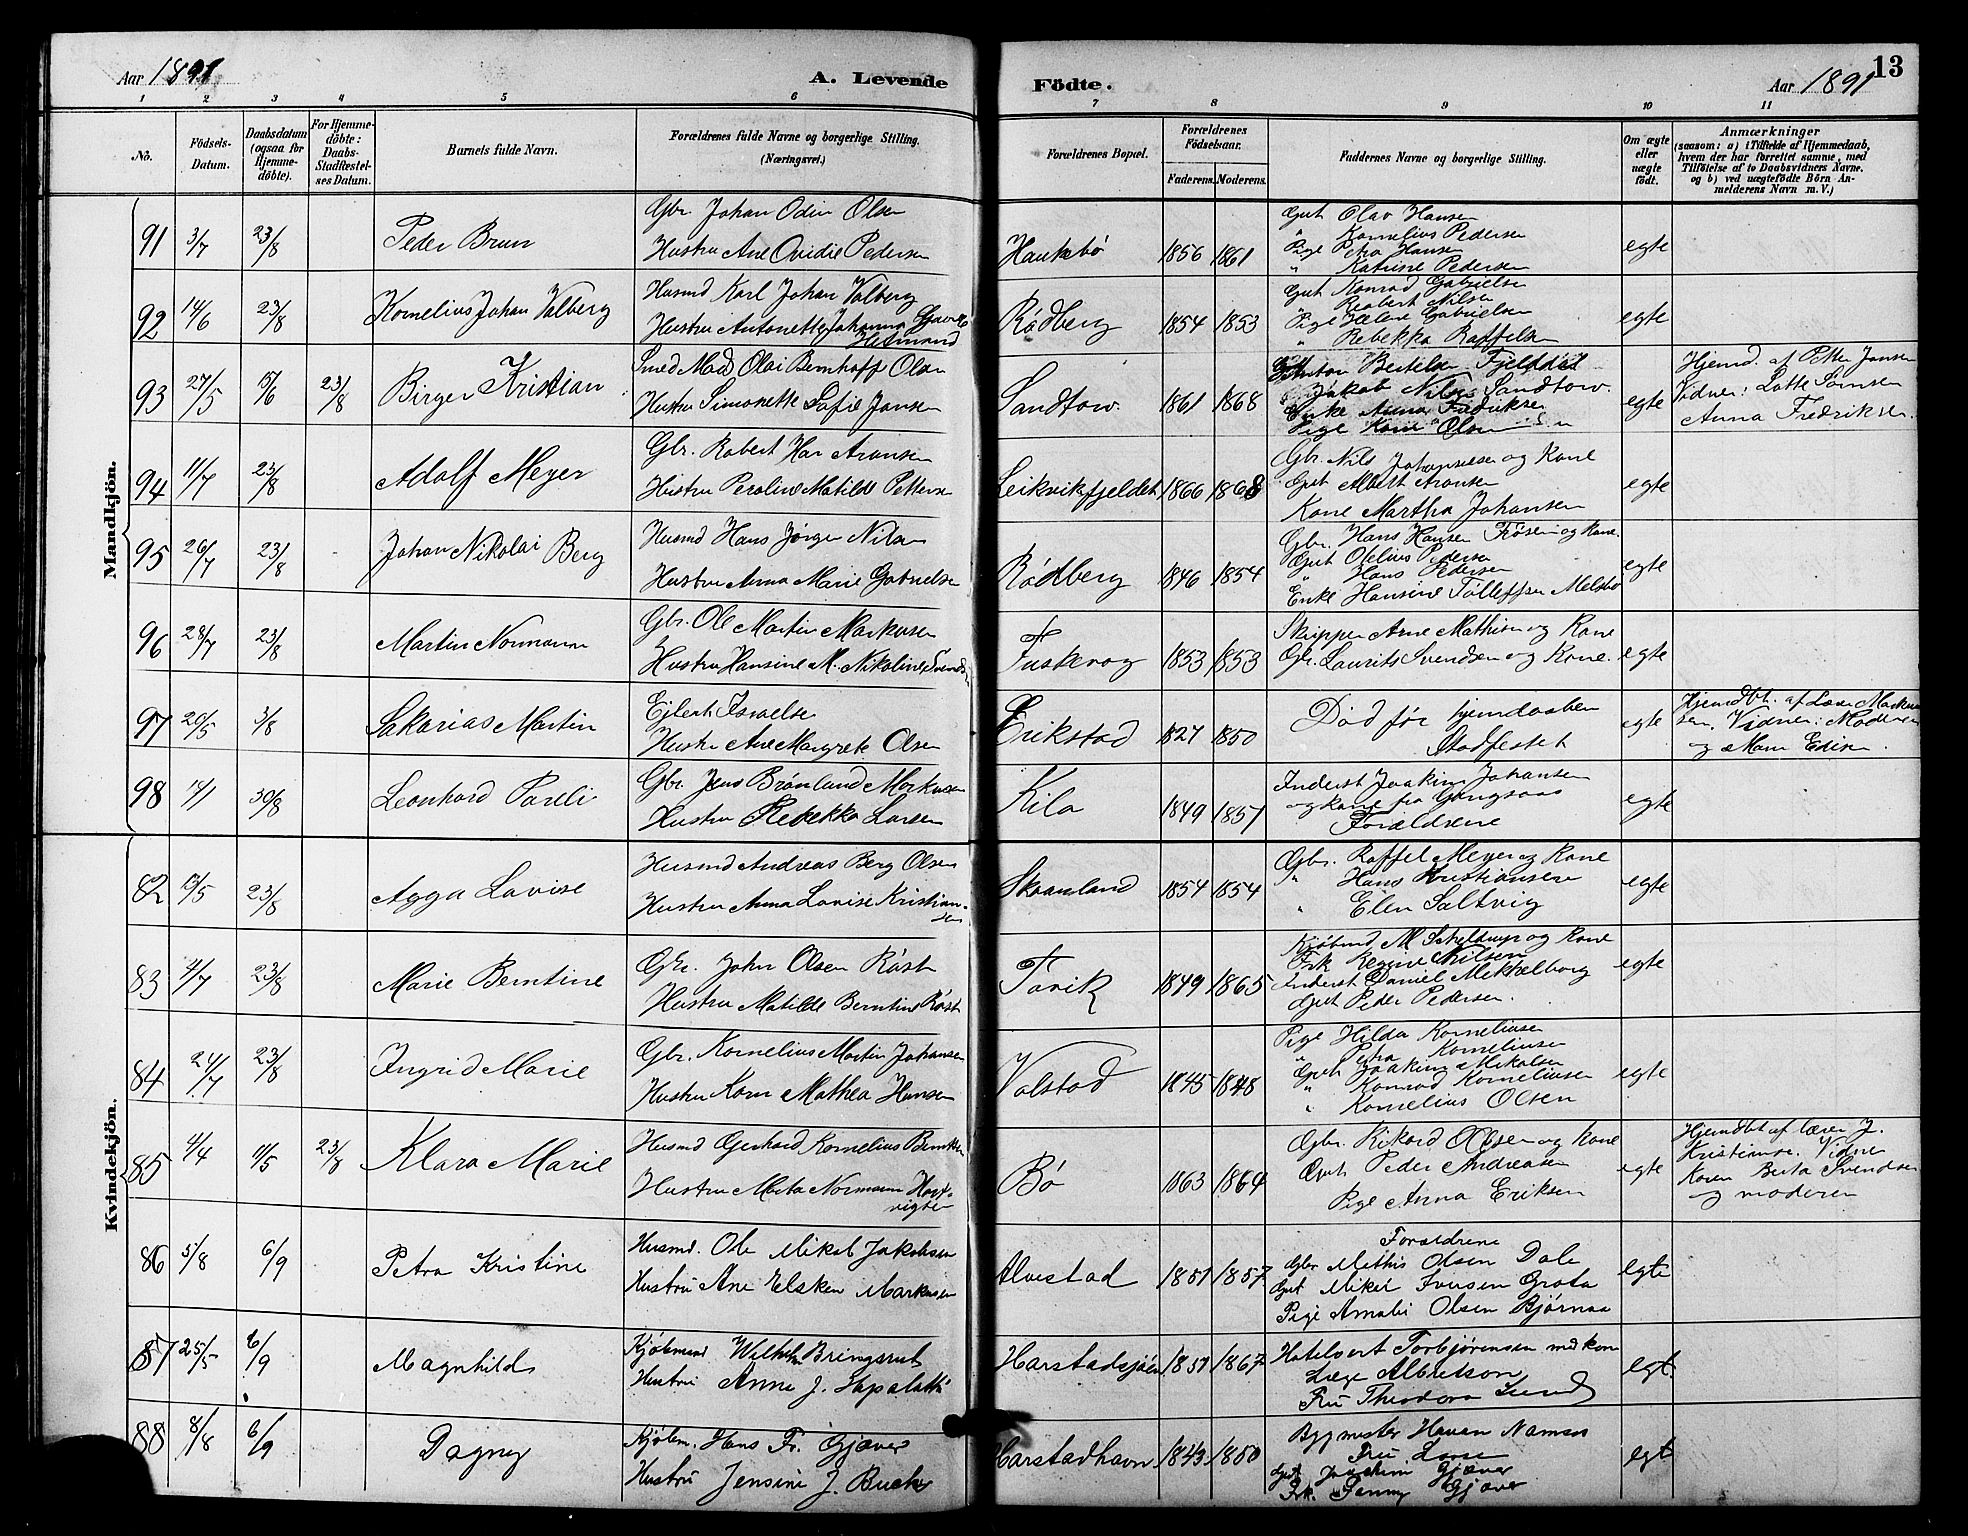 Aar 1891
A. Levende
Födte.
Aar 1891
13
1 2 3 4 5 6 7 8 9 10 11
No.
Födsels-Datum.
Daabsdatum (ogsaa for Hjemme-döbte).
For Hjemme-döbte: Daabs-Stadfæstel-ses Datum.
Barnets fulde Navn.
Forældrenes fulde Navne og borgerlige Stilling. (Næringsvei.)
Forældrenes Bopæl.
Forældrenes Födselsaar.
Faderens. Moderens.
Faddernes Navne og borgerlige Stilling.
Om ægte eller uægte født.
Anmærkninger
(saasom: a) i Tilfælde af Hjemmedaab, hvem der har forrettet samme, med Tilföielse af to Daabsvidners Navne, og b) ved uægtefödte Börn An-melderens Navn m. V.)
Mandkjön.
91 3/7 23/8 Peder Brun
Gbr Johan Odin Olsen
Hustru Ane Ovidie Pedersen
Haukebø 1856 1861
Gut Olav Hansen
" Kornelius Pedersen
Pige Petra Hansen
" Katrine Pedersen
egte
92 14/6 23/8 Kornelius Johan Valberg
Husmd Karl Johan Valberg
Hustru Antonette Johanna
Rødberg 1854 1853
Gut Konrad Gabrielse
" Robert Nilsen
Pige Helene Gabrielsen
" Rebekka Raffelsen
egte
93 27/5 15/6 23/8 Birger Kristian
Smed Mads Olai Bernhoff Olsen
Hustru Simonette Sofie Jansen
Sandtorv 1861 1868
Bertelsen
Jakob Nilsen Sandtorv
Enke Anna Fredriksen
Pige Olsen
egte
Hjemd. af Petter Jansen
Vidner: Lotte
Anna Fredriksen.
94 11/7 23/8 Adolf Meyer
Gbr. Robert Har Aronsen
Hustru Peroline Matilde Pettersen
Leikvikfjeldet 1866 1868
Gbr. Nils og Kone
Gut Albert Aronsen
Kone Martha Johansen
egte
95 26/7 23/8 Johan Nikolai Berg
Husmd Hans Jørgen Nilsen
Hustru Anna Marie Gabrielsen
Rødberg 1846 1854
Gbr. Hans Hansen og Kone.
Gut Olelius Pedersen
" Hans Pedersen
Enke Hansine Tollefsen
egte
96 28/7 23/8 Martin Normann
Gbr. Ole Martin Markusen
Hustru Hansine M. Nikoline Svendsen
Fuskevog 1853 1853
Skipper Arne Mathisen og Kone
Gbr. Laurits Svendsen og Kone.
egte
97 20/5 3/8 Sakarias Martin
Eilert Israelsen
Hustru Ane Margrete Olsen
Erikstad 1827 1850
Død før hjemdaaben
Stadfestet
egte
Hjemdbt. af Markus-
sen. Vidner: Moderen
og
98 30/8 Leonhard Pareli
Gbr. Jens Brønlund Markusen
Hustru Rebekka Larsen
Kila 1849 1857
Inderst Joakim Johansen
og kone fra Gangsaas
Forældrene
egte
Kvindekjön.
82 13/5 23/8 Agga Lovise
Husmd Andreas Berg Olsen
Hustru Anna Lovise Kristian-
sen
Skaanland 1854 1854
Gbr. Raffel Meyer og Kone
" Hans Kristiansen
" Elen Saltvig
egte
83 4/7 23/8 Marie Berntine
Gbr. John Olsen Røst
Hustru Matilde Berntine Røst
Tovik 1849 1865
Kjøbmd M Scheldrup og Kone
Frk Regine Nilsen
Inderst Daniel Mekkelborg
Gut Peder Pedersen.
egte
84 24/7 23/8 Ingrid Marie
Gbr. Kornelius Martin Johansen
Hustru Karn Mathea Hansen
Valstad 1845 1848
Pige Hilda Korneliusen
" Petra Korneliusen
Gut Joakim Mikalsen
" Konrad Korneliusen
" Kornelius Olsen
egte
85 4/4 11/5 23/8 Klara Marie
Husmd Gerhard Kornelius Berntsen
Hustru Marta Normann Hart-
vigsen
Bø 1863 1864
Gbr. Rikard Olsen og Kone
Gut Peder Andreasen
Pige Anna Eriksen
egte
Hjemdbt af lærer J.
Kristiansen. Vidner
Karen Berta Svendsen
og moderen
86 5/8 6/9 Petra Kristine
Husmd. Ole Mikal Jakobsen
Hustru Ane Elsken Markusen
Alvestad 1851 1857
Forældrene
Gbr Mathis Olsen Dale
Gut Mikal Iversen Grota
Pige Amalie Olsen Bjørnaa
egte
87 25/5 6/9 Magnhild
Kjøbmand Wilhelm Bringsrud
Hustru Anne J.
Harstadsjøen 1857 1867
Hotelvert Torbjørensen med kone
Læge Albretson
Fru Theodora Lund
egt.
88 8/8 6/9 Dagny
Kjøbm. Hans Fr. Gjæver
Hustru Jensine J. Buck
Harstadhavn 1843 1850
Bygmester Haven Namsos
Fru
Gut Joachim Gjæver
Frk. Fanny Gjæver
egt